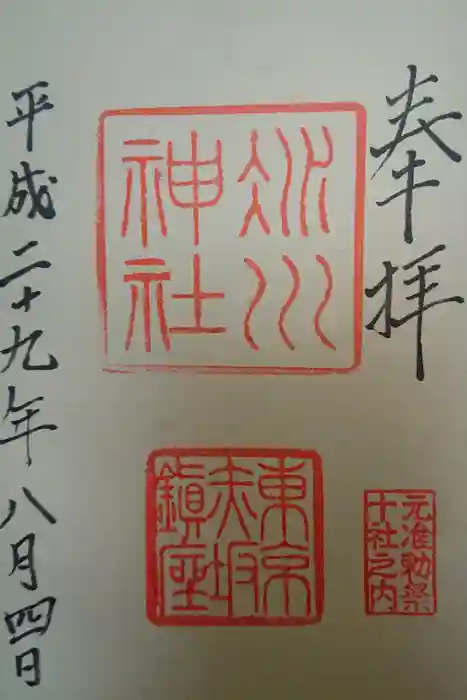 奉拝
冰川
神社
東京
赤坂
鎭座
元准勅祭
十社之内
平成二十九年八月四日